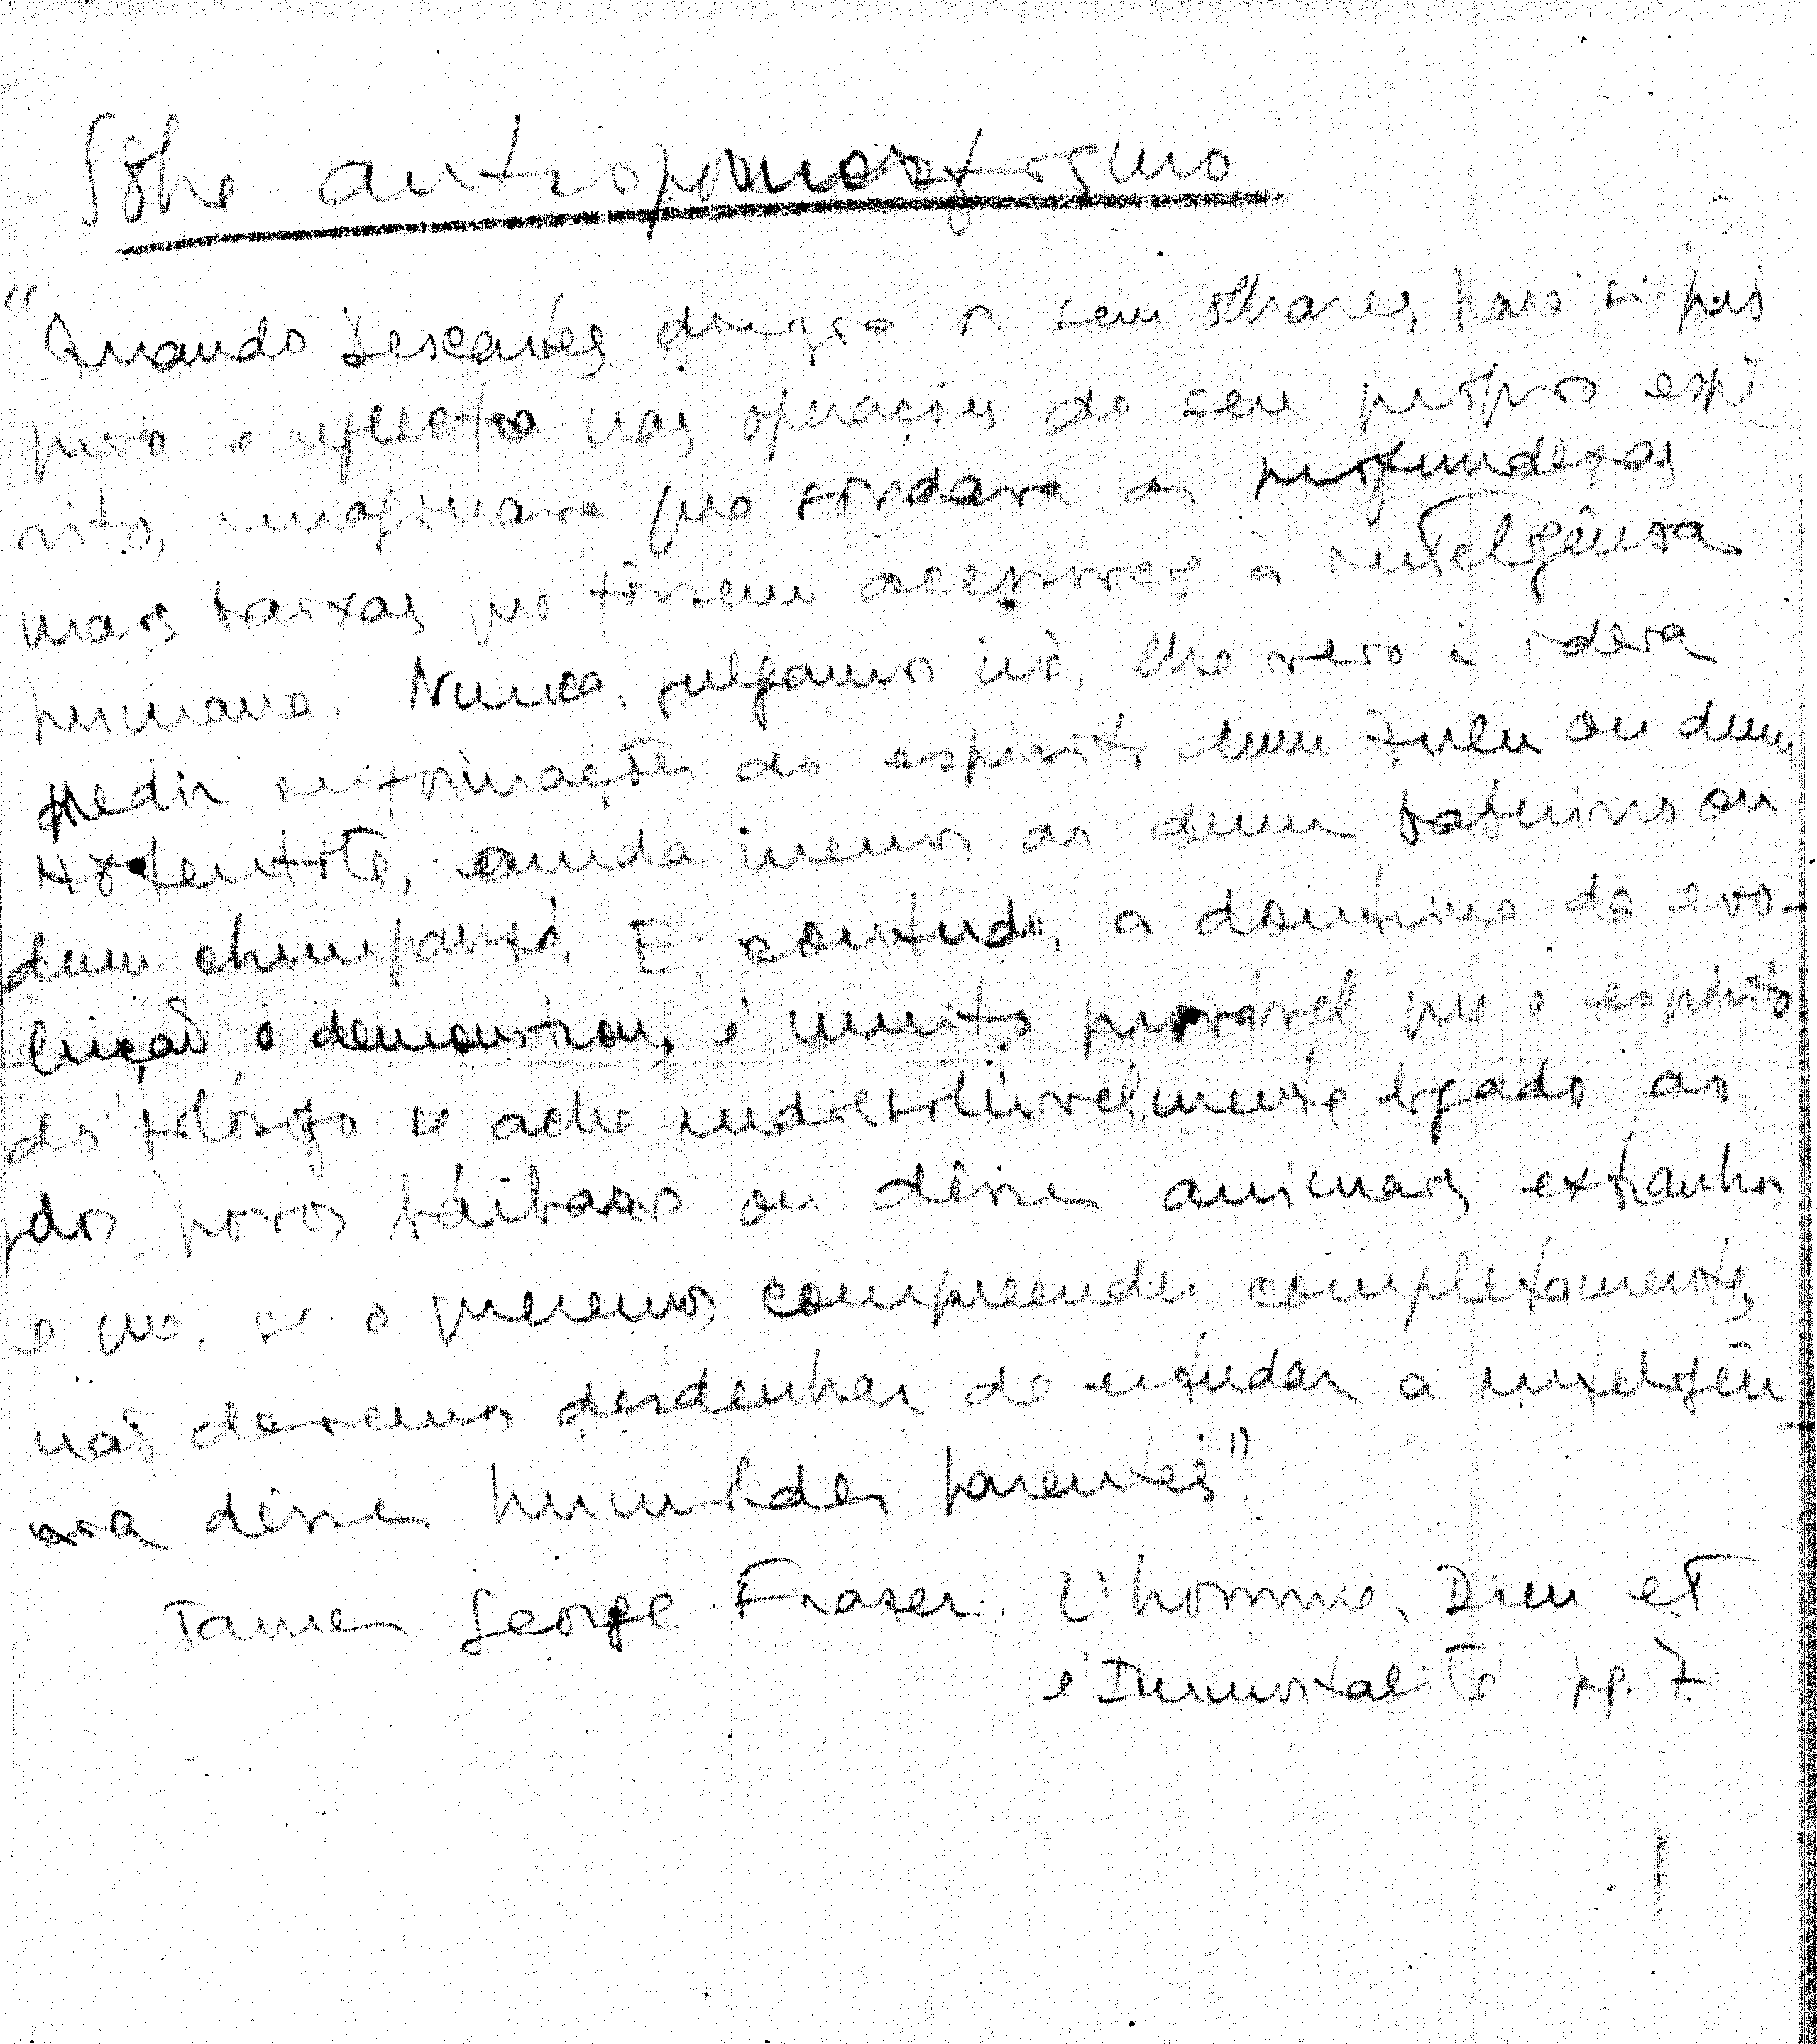 Sôbre antropomorfismo
"Quando Descartes dirigia os seus olhares para si pró
prio e reflectia nas operações do seu próprio espí
rito, imaginava que sondava as profundezas
mais baixas que fôssem acessíveis à inteligência
humana. Nunca, julgamos nós, lhe veio a ideia
pedir informações ao espírito dum Zulu ou dum
Hotentote, ainda menos ao dum babuino ou
dum chimpanzé. E, contudo, a doutrina da evo-
lução o demonstrou, é muito provável que o espírito
do filósofo se ache indissoluvelmente ligado ao
dos povos bárbaros ou dêsses animais extranhos
e que, se o queremos compreender completamente,
não devemos desdenhar de estudar a inteligên-
cia dêsses humildes parentes".
James George Frazer. L'homme, Dieu et
l'Immortalité pg. 7